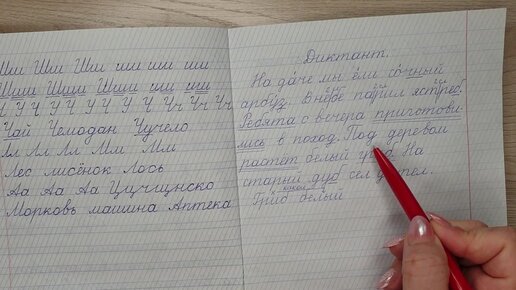 Ши Ши Ши ши ши ши
Шиш Шиш Шиши шш ши
Ч Ч Ч Ч Ч Ч Ч Чч Чч Чч
Чай Чемодан Чучело
Лл Лл Лл Мм Мм
Лес лисёнок Лось
Аа Аа Аа
Морковь машина Аптека
Диктант.
На даче мы ели сочный
арбуз. В небе парил ястреб.
Ребята с вечера приготови-
лись в поход. Под деревом
растет белый гриб. На
старый дуб сел дятел.
какой
Гриб белый